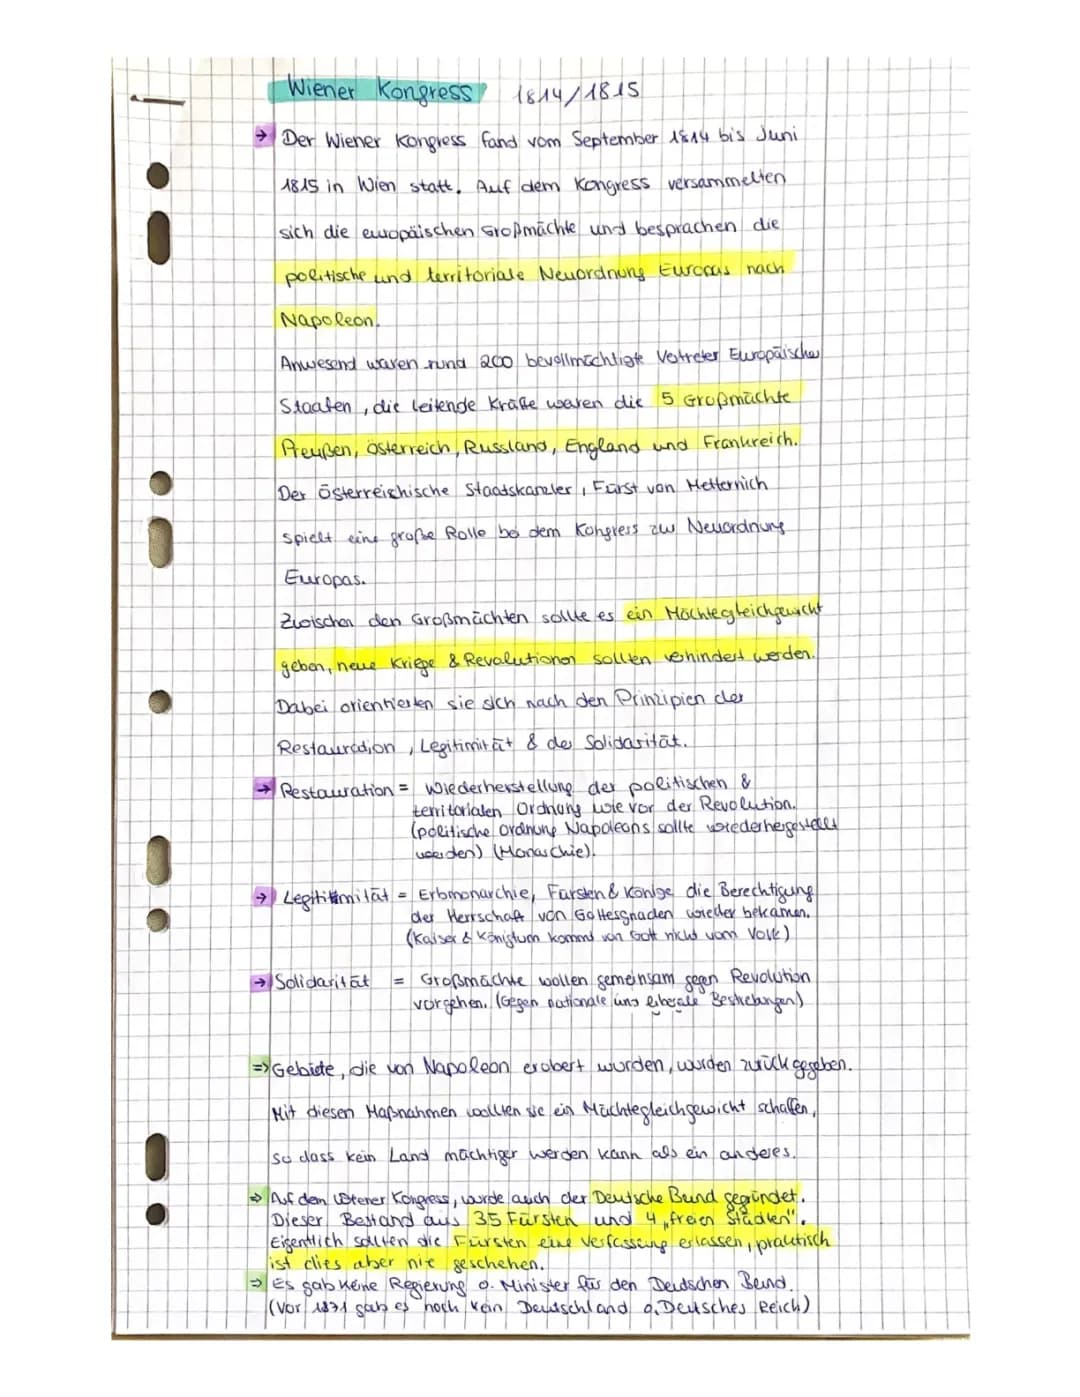 Wiener Kongress 1814/1815
→ Der Wiener Kongress fand vom September 1814 bis Juni
1815 in Wien statt. Auf dem Kongress versammelten
sich die europäischen Großmächte und besprachen die
politische und territoriale Neuordnung Europas nach
Napoleon.
Anwesend waren rund 200 bevollmächtigte Vetreter Europäischer
Staaten, die leitende Kräfte waren die 5 Großmächte
Preußen, Österreich, Russland, England und Frankreich.
Der Österreichische Staatskanzler, Fürst von Metternich
spielt eine große Rolle bei dem Kongress zur Neuordnung
Europas.
Zwischen den Großmächten sollte es ein Mächtegleichgewicht
geben, neue Kriege & Revolutionen sollten verhindert werden.
Dabei orientierten sie sich nach den Prinzipien der
Restauration, Legitimität & der Solidarität.
→ Restauration = Wiederherstellung der politischen &
territorialen Ordnung wie vor der Revolution.
(politische Ordnung Napoleons sollte wiederhergestellt
werden) (Monarchie).
→ Legitimität = Erbmonarchie, Fürsten & Könige die Berechtigung
der Herrschaft von Gottesgnaden wieder bekamen.
(Kaiser & Königtum kommt von Gott nicht vom Volk)
→ Solidarität = Großmächte wollen gemeinsam gegen Revolution
vorgehen. (Gegen nationale und liberale Bestrebungen)
⇒ Gebiete, die von Napoleon erobert wurden, wurden zurück gegeben.
Mit diesen Maßnahmen wollten sie ein Mächtegleichgewicht schaffen,
so dass kein Land mächtiger werden kann als ein anderes.
⇒ Auf dem Wiener Kongress, wurde auch der Deutsche Bund gegründet.
Dieser Bestand aus 35 Fürsten und 4 „freien Städten".
Eigentlich sollten die Fürsten eine Verfassung erlassen, praktisch
ist dies aber nie geschehen.
⇒ Es gab keine Regierung o. Minister für den Deutschen Bund.
(Vor 1871 gab es noch kein Deutschland o. Deutsches Reich)